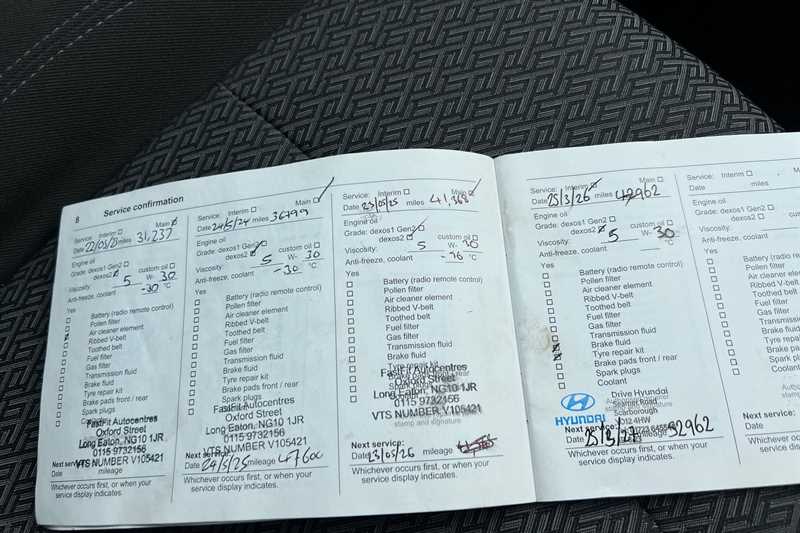 8
Service confirmation
Service: Interim Main
Date 22/03/23 miles 31,237
Engine oil
Grade: dexos1 Gen2
dexos2 custom oil
Viscosity: 5 W- 30
Anti-freeze, coolant -30 °C
Yes
Battery (radio remote control)
Pollen filter
Air cleaner element
Ribbed V-belt
Toothed belt
Fuel filter
Gas filter
Transmission fluid
Brake fluid
Tyre repair kit
Brake pads front / rear
Spark plugs
FastFit Autocentres
Oxford Street
Long Eaton, NG10 1JR
0115 9732156
VTS NUMBER V105421
Next service:
Date mileage
Whichever occurs first, or when your
service display indicates.
Service: Interim Main
Date 24/5/24 miles 36799
Engine oil
Grade: dexos1 Gen2
dexos2 custom oil
Viscosity: 5 W- 30
Anti-freeze, coolant -30 °C
Yes
Battery (radio remote control)
Pollen filter
Air cleaner element
Ribbed V-belt
Toothed belt
Fuel filter
Gas filter
Transmission fluid
Brake fluid
Tyre repair kit
Brake pads front / rear
Spark plugs
FastFit Autocentres
Oxford Street
Long Eaton, NG10 1JR
0115 9732156
VTS NUMBER V105421
Next service:
Date 24/5/25 mileage 47600
Whichever occurs first, or when your
service display indicates.
Service: Interim Main
Date 23/05/25 miles 41,368
Engine oil
Grade: dexos1 Gen2
dexos2 custom oil
Viscosity: 5 W- 30
Anti-freeze, coolant -36 °C
Yes
Battery (radio remote control)
Pollen filter
Air cleaner element
Ribbed V-belt
Toothed belt
Fuel filter
Gas filter
Transmission fluid
Brake fluid
Tyre repair kit
FastFit Autocentres
Oxford Street
Long Eaton, NG10 1JR
0115 9732156
VTS NUMBER V105421
stamp and signature
Next service:
Date 23/05/26 mileage
Whichever occurs first, or when your
service display indicates.
Service: Interim Main
Date 25/3/26 miles 42962
Engine oil
Grade: dexos1 Gen2
dexos2 custom oil
Viscosity: 5 W- 30
Anti-freeze, coolant °C
Yes
Battery (radio remote control)
Pollen filter
Air cleaner element
Ribbed V-belt
Toothed belt
Fuel filter
Gas filter
Transmission fluid
Brake fluid
Tyre repair kit
Brake pads front / rear
Spark plugs
Coolant
HYUNDAI
Drive Hyundai
Scarborough
Next service:
Date 25/3/27 mileage 52962
Whichever occurs first, or when your
service display indicates.
Service: Interim
Date miles
Engine oil
Grade: dexos1 Gen2
dexos2 custom oil
Viscosity: W-
Anti-freeze, coolant
Yes
Battery (radio remote
Pollen filter
Air cleaner element
Ribbed V-belt
Toothed belt
Fuel filter
Gas filter
Transmission fluid
Brake fluid
Tyre repair kit
Brake pads front / rear
Spark plugs
Coolant
stamp and
Next service:
Date mileage
Whichever occurs first, or
service display indicates.